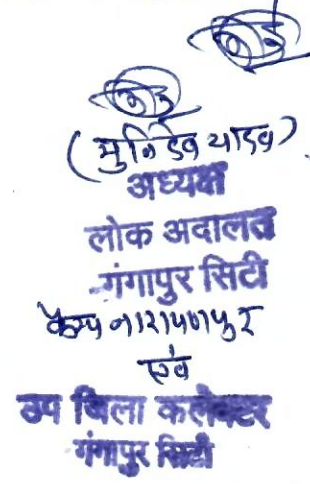 (मुनिदेव यादव)
अध्यक्ष
लोक अदालत
गंगापुर सिटी
कैम्प नारायणपुर
एवं
उप जिला कलेक्टर
गंगापुर सिटी